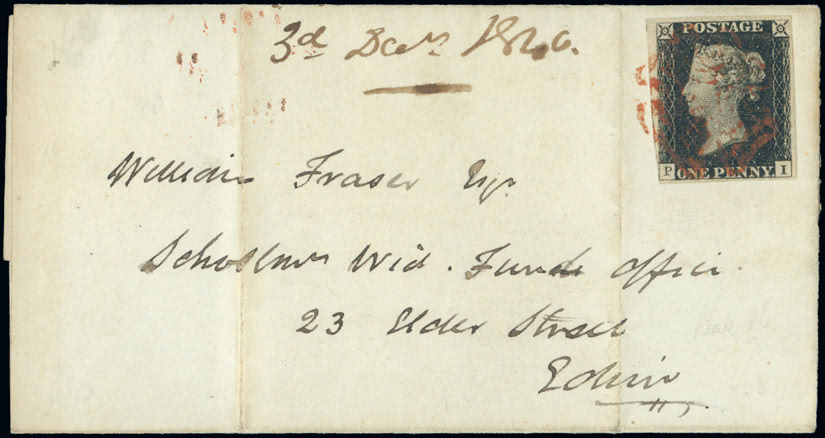 3d Decr 1840.
POSTAGE
P ONE PENNY I
William Fraser Esqr
Schoolmrs Wid. Funds Office
23 Elder Street
Edinr